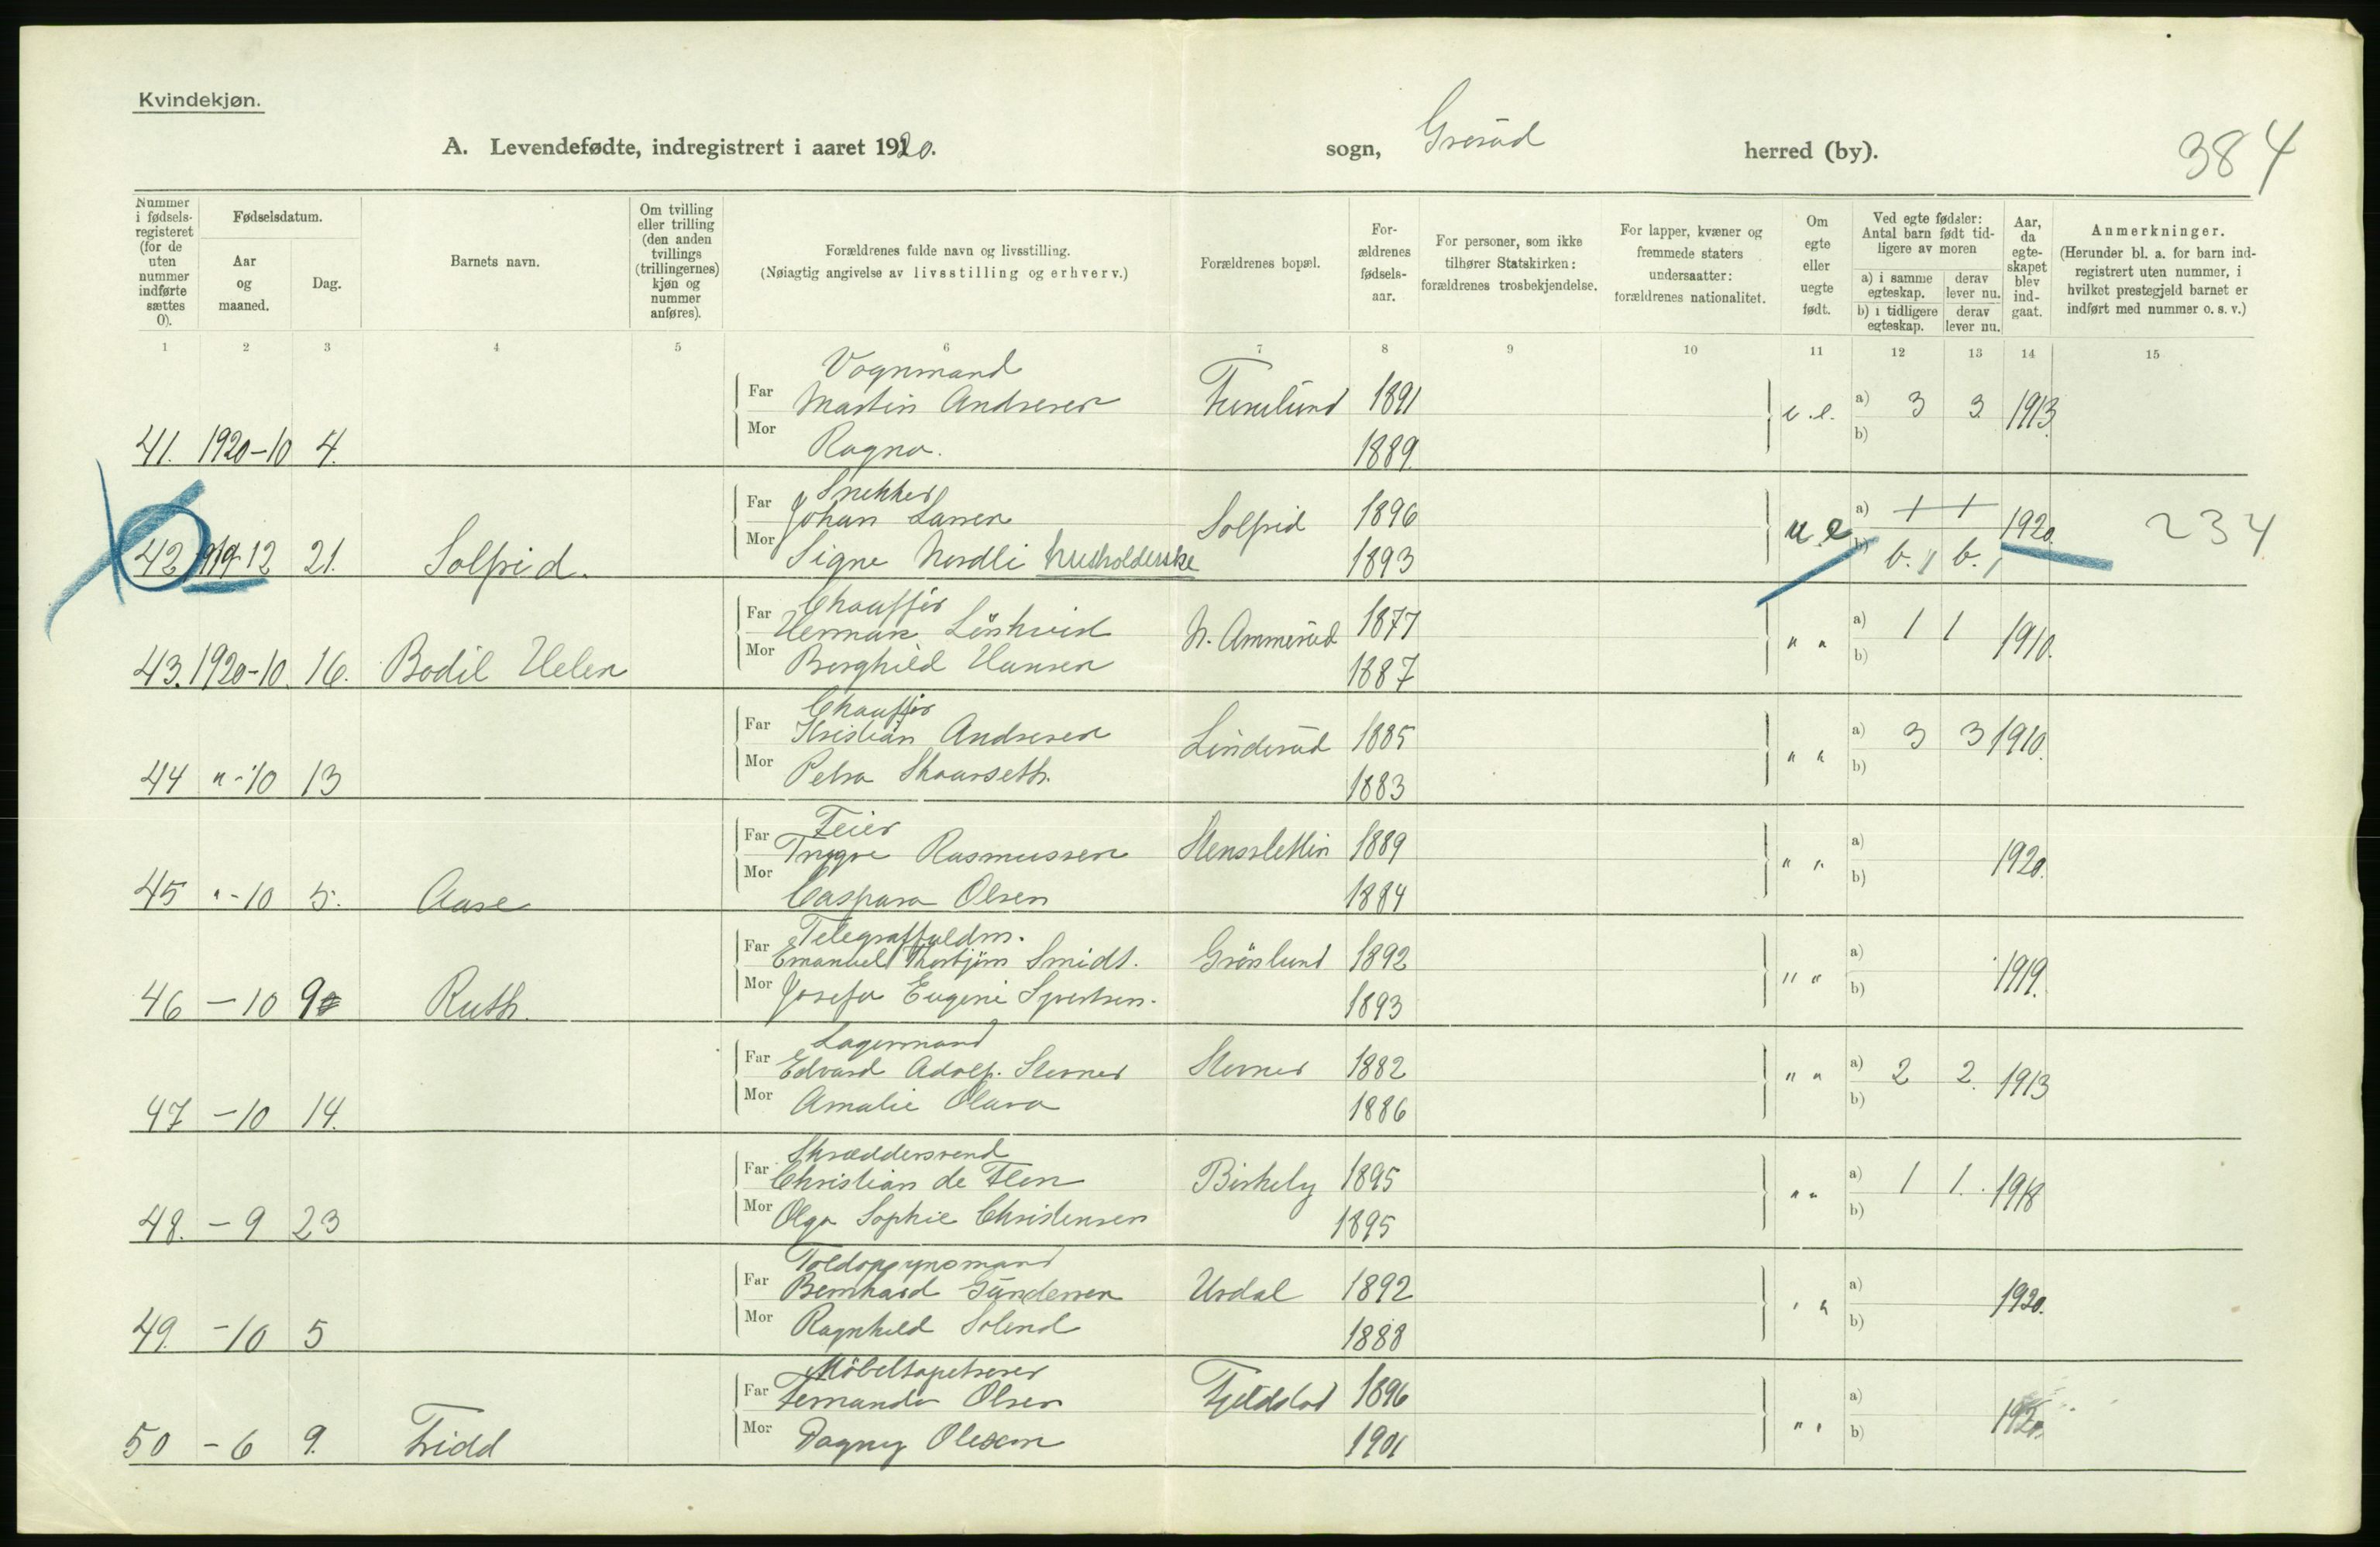 Kvindekjøn.
A. Levendefødte, indregistrert i aaret 1920. sogn, Grorud herred (by). 384
Nummer i fødsels-registeret (for de uten nummer indførte sættes 0).
Fødselsdatum.
Aar og maaned.
Dag.
Barnets navn.
Om tvilling eller trilling (den anden tvillings (trillingernes) kjøn og nummer anføres).
Forældrenes fulde navn og livsstilling.
(Nøiagtig angivelse av livsstilling og erhverv.)
Forældrenes bopæl.
For-ældrenes fødsels-aar.
For personer, som ikke tilhører Statskirken: forældrenes trosbekjendelse.
For lapper, kvæner og fremmede staters undersaatter: forældrenes nationalitet.
Om egte eller uegte født.
Ved egte fødsler: Antal barn født tid-ligere av moren
a) i samme egteskap. derav lever nu.
b) i tidligere egteskap. derav lever nu.
Aar, da egte-skapet blev ind-gaat.
Anmerkninger.
(Herunder bl. a. for barn ind-registrert uten nummer, i hvilket prestegjeld barnet er indført med nummer o. s. v.)
1 2 3 4 5 6 7 8 9 10 11 12 13 14 15
Vognmand
Far Martin Andresen Furulund 1891 e. a) 3 3 1913
41. 1920-10 4. Mor Ragna. 1889. b)
Snekker
Far Johan Larsen Solfrid 1896 u e a) 1 1 1920.
42 1919-12 21. Solfrid. Mor Signe Nordli husholderske 1893 b) b. 1 b. 1 234
Chauffør
Far Herman Lönkvist N. Ammerud 1877 " " a) 1 1 1910.
43. 1920-10. 16. Bodil Helen Mor Borghild Hansen 1887 b)
Chauffør
Far Kristian Andresen Linderud 1885 " " a) 3 3 1910.
44 " - 10 13 Mor Petra Skaarseth. 1883 b)
Feier
Far Trygve Rasmussen Stensletten 1889 " " a) 1920.
45 " - 10 5. Aase Mor Caspara Olsen 1884 b)
Far Emanuel Thorbjørn Smidt. Grönlund 1892 " " a) 1919.
46 - 10 9 Ruth. Mor Josefa Eugenie 1893 b)
Lagermand
Far Edvard Adolf. Sterner Sterner 1882 " " a) 2 2. 1913
47 - 10 14. Mor Amalie Olava 1886 b)
Skræddersvend
Far Christian de Flon Birkely 1895 " " a) 1 1. 1918
48. - 9 23 Mor Olga Sophie Christensen 1895 b)
Toldopsynsmand
Far Bernhard Gundersen Urdal 1892 " " a) 1920.
49. - 10 5 Mor Ragnhild Solend 1888 b)
Möbeltapetserer
Far Fernando Olsen 1896 " " a) 1920.
50 - 6 9. Mor Dagny 1901 b)